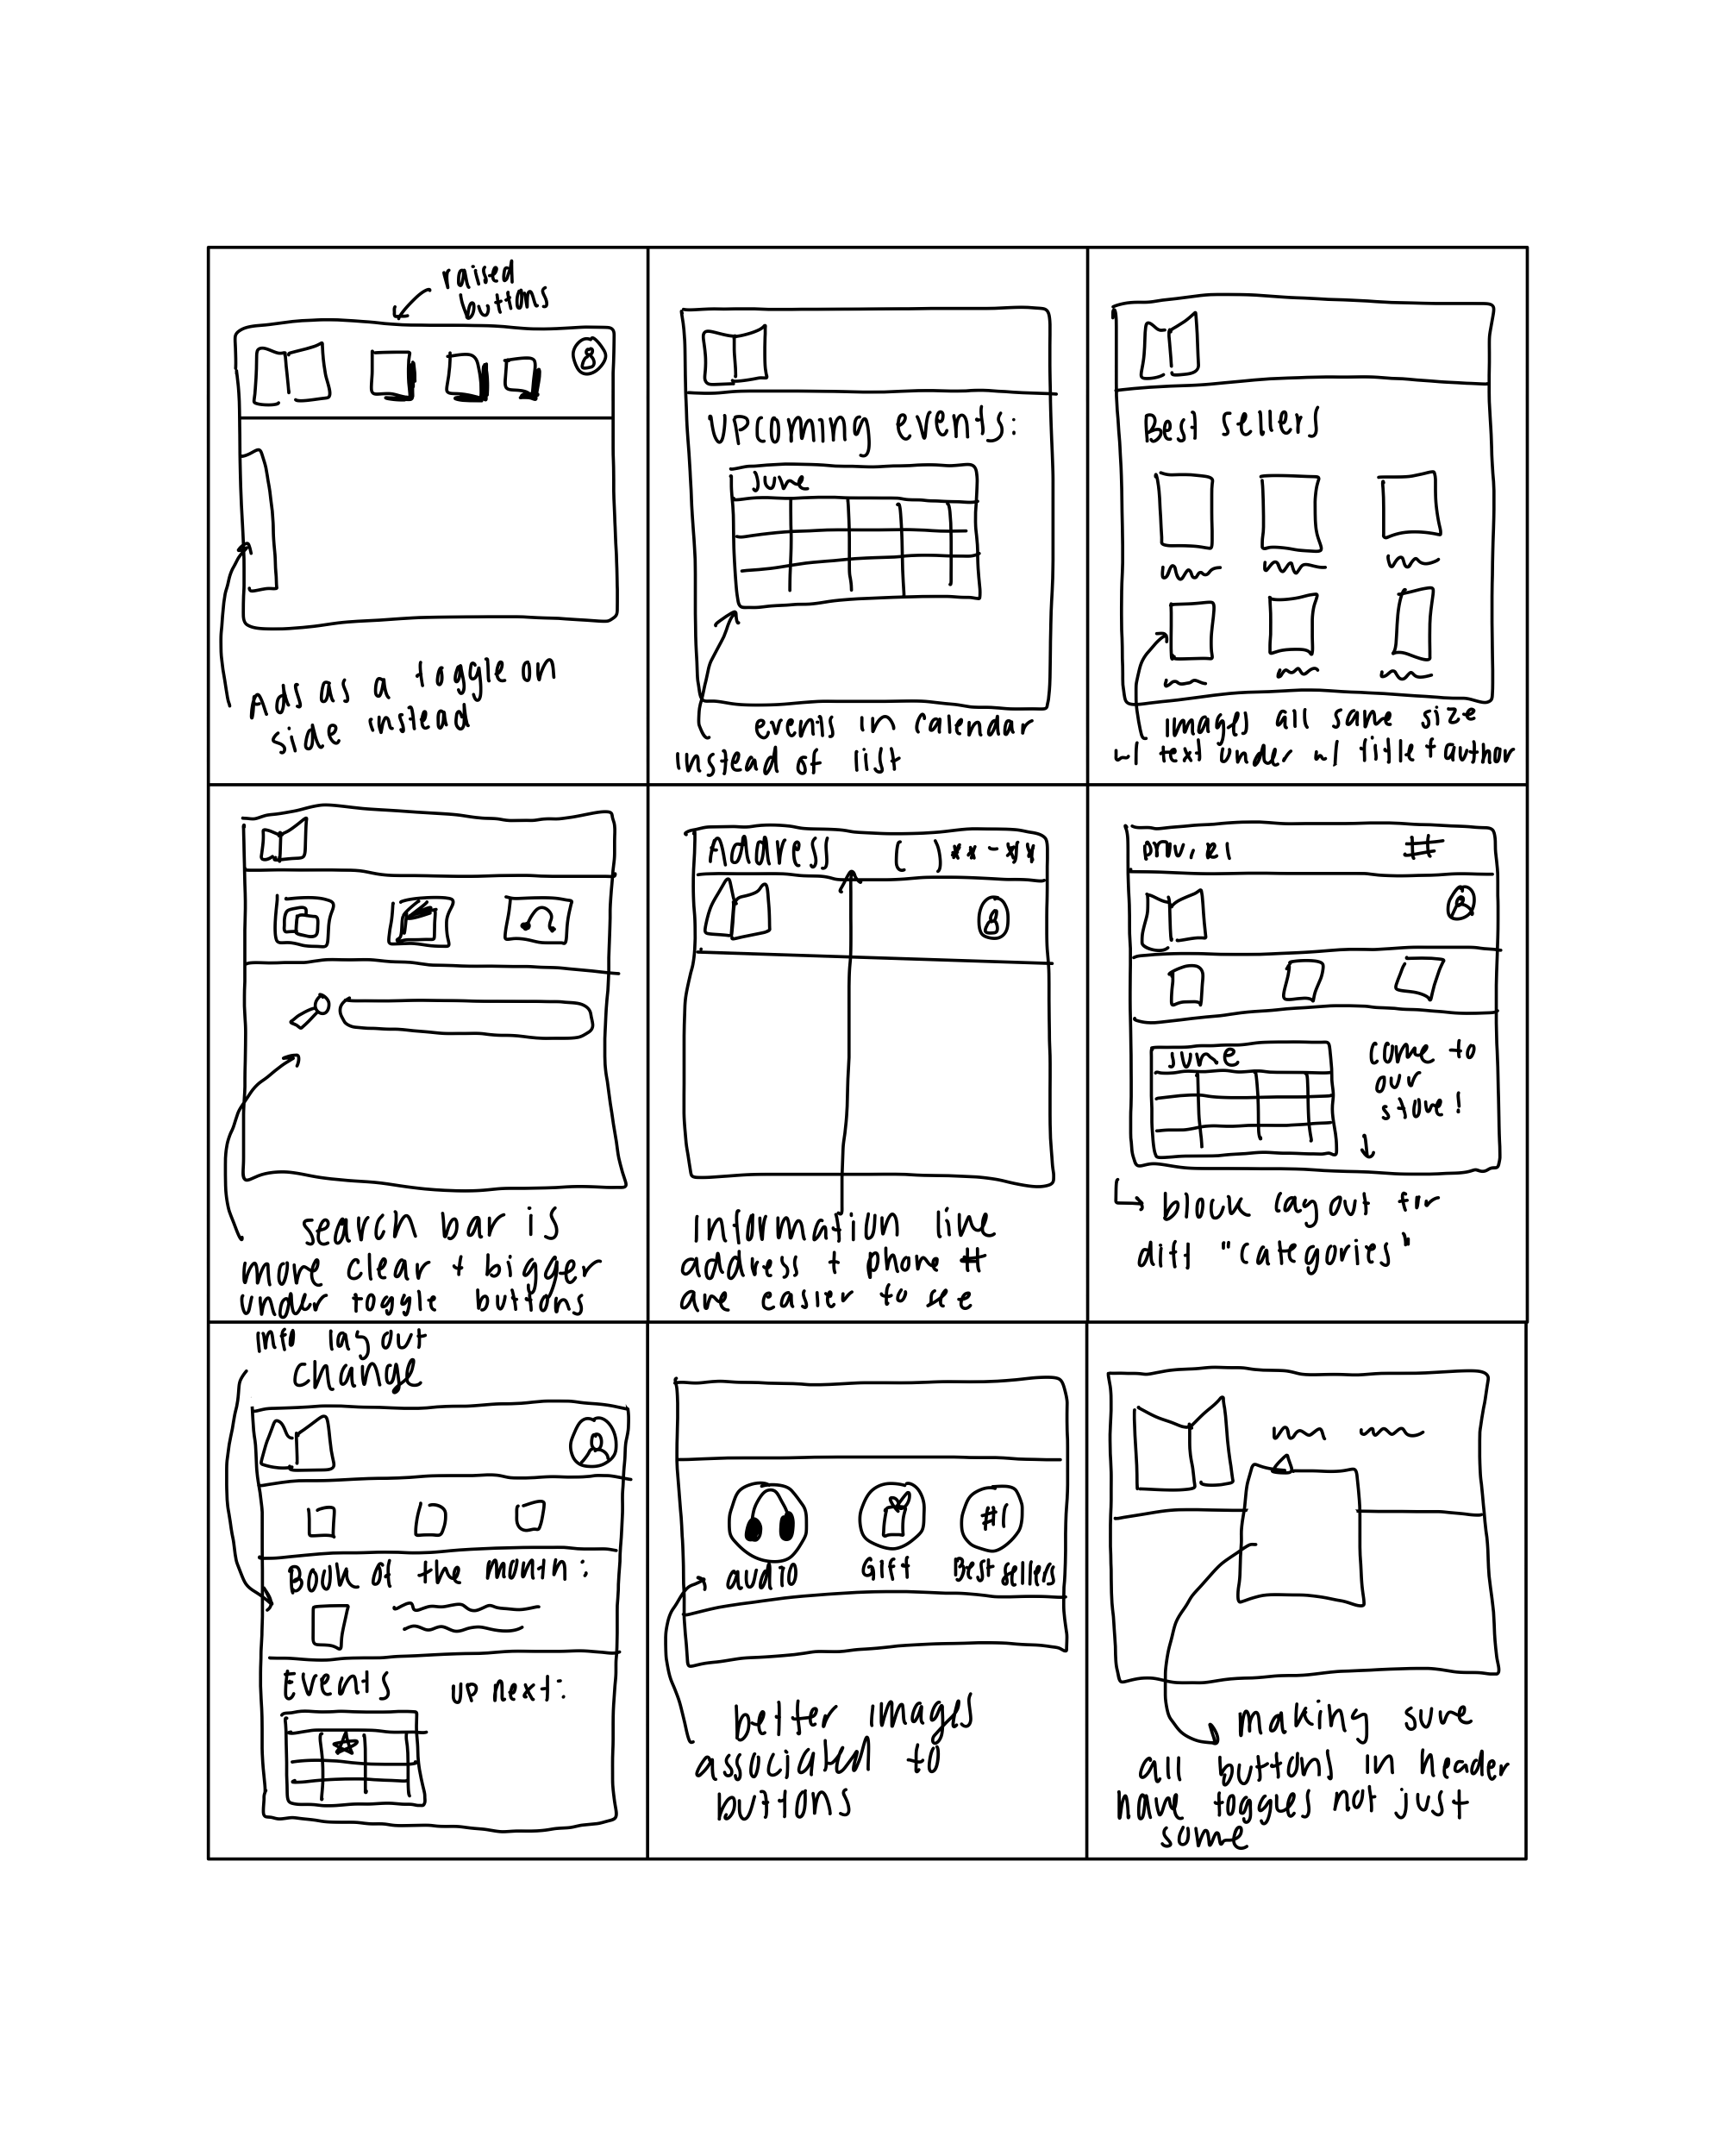 raised
buttons
Ads as a toggle on
side instead
Upcoming events:
June
events in calendar
instead of list
Best sellers
images all same size
w/ text under w/ title + author
search bar is
more clear + bigger
under toggle buttons
Address ( ) ** - **
information line
address + phone #
are easier to see
prov, RI #
June
come to
our
store!
block layout for
diff "categories"
info layout
change
Book of the month:
Events up next:
#1
audio Gift Best sellers
better images
associated to
buttons
making sure
all buttons in header
have toggles not just
some